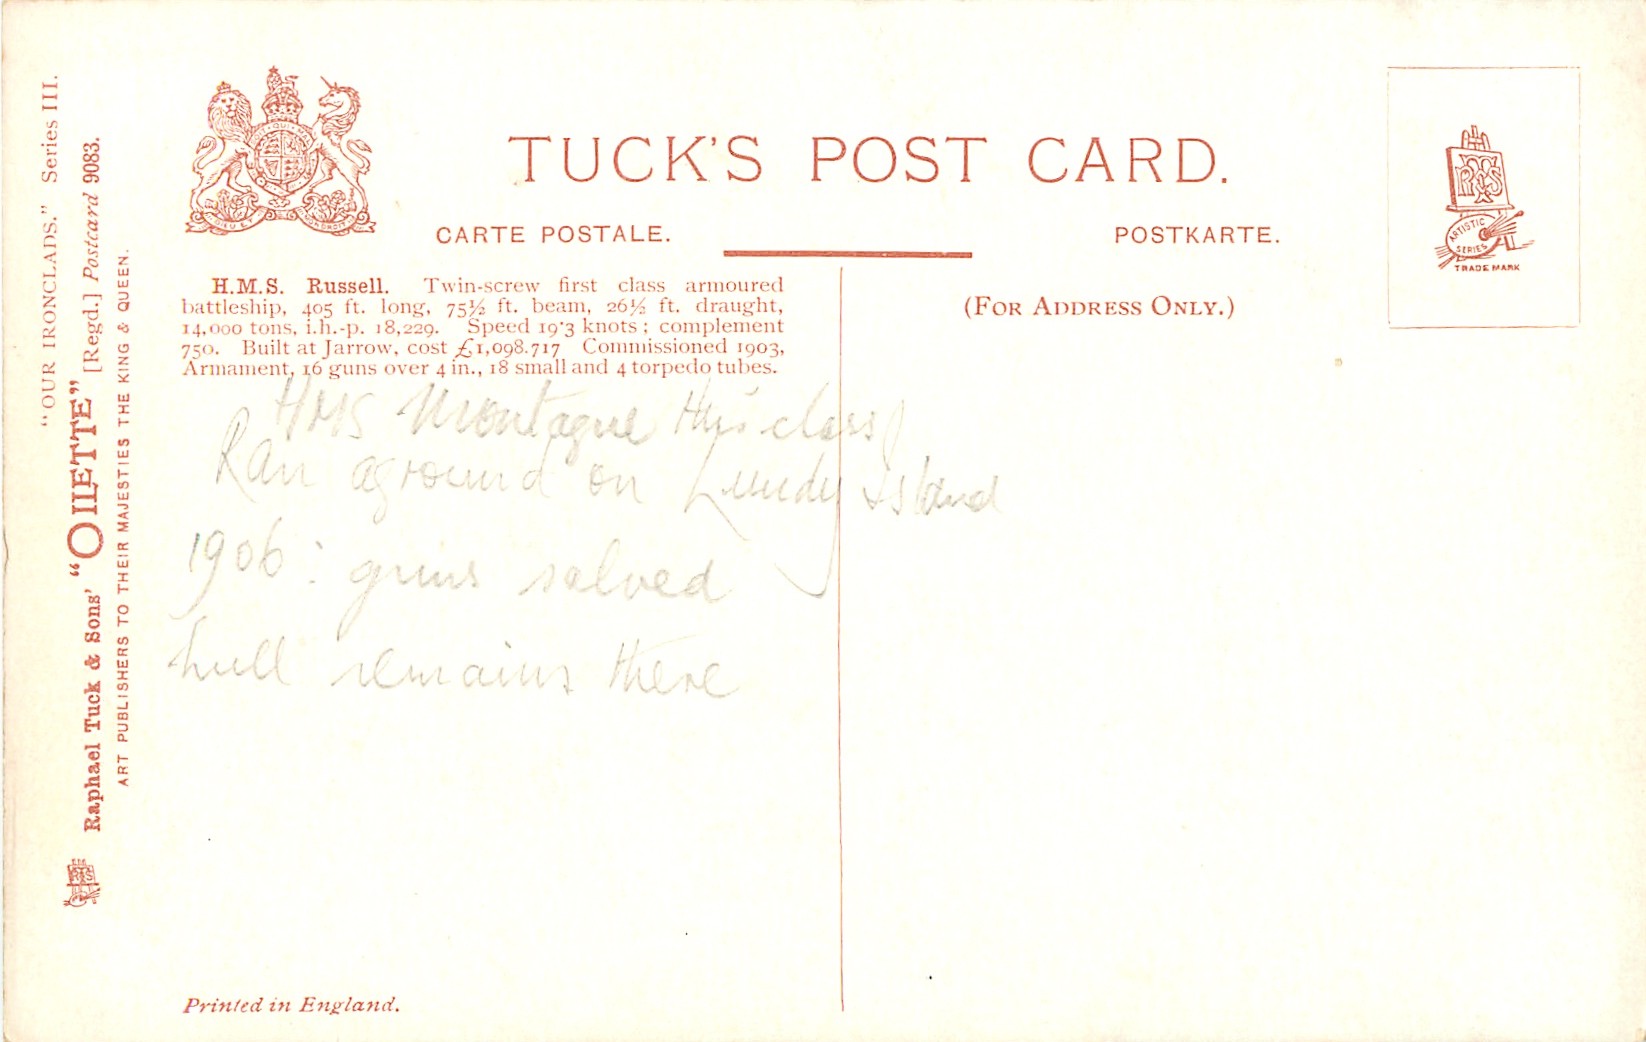 "OUR IRONCLADS." Series III.
Raphael Tuck & Sons' "OILETTE" [Regd.] Postcard 9083.
ART PUBLISHERS TO THEIR MAJESTIES THE KING & QUEEN.
TUCK'S POST CARD.
CARTE POSTALE.
POSTKARTE.
ARTISTIC
SERIES
TRADE MARK
(FOR ADDRESS ONLY.)
H.M.S. Russell. Twin-screw first class armoured
battleship, 405 ft. long, 75½ ft. beam, 26½ ft. draught,
14,000 tons, i.h.-p. 18,229. Speed 19·3 knots; complement
750. Built at Jarrow, cost £1,098.717 Commissioned 1903,
Armament, 16 guns over 4 in., 18 small and 4 torpedo tubes.
HMS Montague this class
Ran aground on Lundy Island
1906: guns salved
hull remains there
Printed in England.